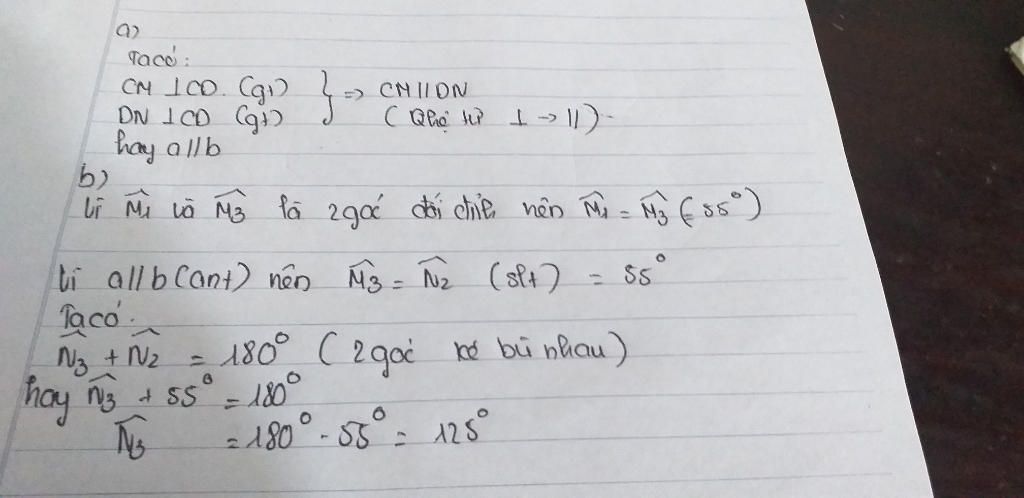 a)
Ta có:
CM ⊥ CD. (gt) } => CM // DN
DN ⊥ CD (gt) (Qhệ từ ⊥ → //).
hay a // b
b)
Vì M̂1 và M̂3 là 2 góc đối đỉnh nên M̂1 = M̂3 (= 55°)
Vì a // b (cmt) nên M̂3 = N̂2 (slt) = 55°
Ta có.
N̂3 + N̂2 = 180° (2 góc kề bù nhau)
hay N̂3 + 55° = 180°
N̂3 = 180° - 55° = 125°